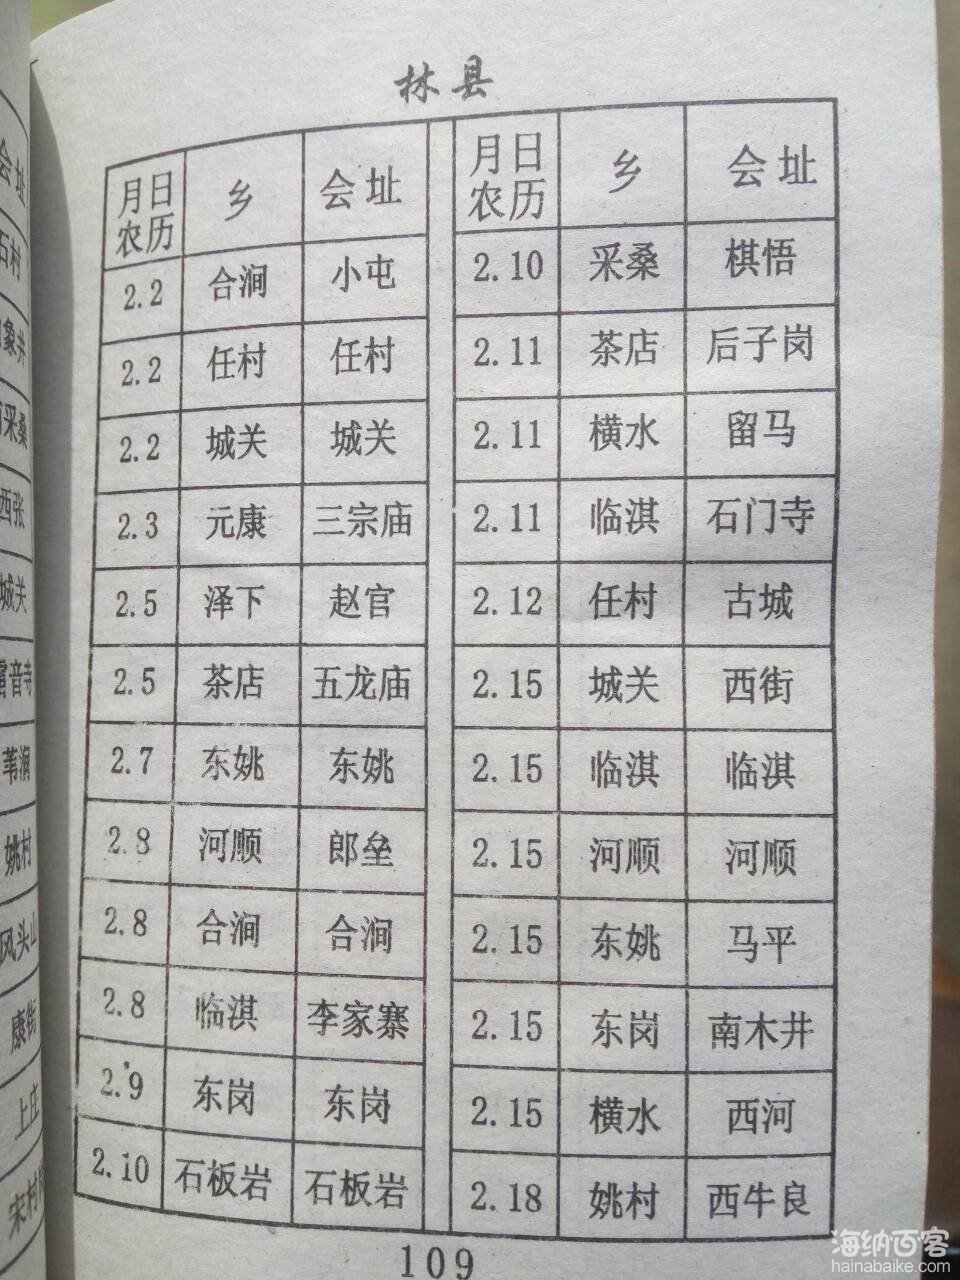 会址
石村
象井
采桑
西张
城关
雷音寺
苇涧
姚村
风头山
康街
上庄
宋村
林县
月日 乡 会址
农历
2.2 合涧 小屯
2.2 任村 任村
2.2 城关 城关
2.3 元康 三宗庙
2.5 泽下 赵官
2.5 茶店 五龙庙
2.7 东姚 东姚
2.8 河顺 郎垒
2.8 合涧 合涧
2.8 临淇 李家寨
2.9 东岗 东岗
2.10 石板岩 石板岩
月日 乡 会址
农历
2.10 采桑 棋悟
2.11 茶店 后子岗
2.11 横水 留马
2.11 临淇 石门寺
2.12 任村 古城
2.15 城关 西街
2.15 临淇 临淇
2.15 河顺 河顺
2.15 东姚 马平
2.15 东岗 南木井
2.15 横水 西河
2.18 姚村 西牛良
109
海纳百客
hainabaike.com